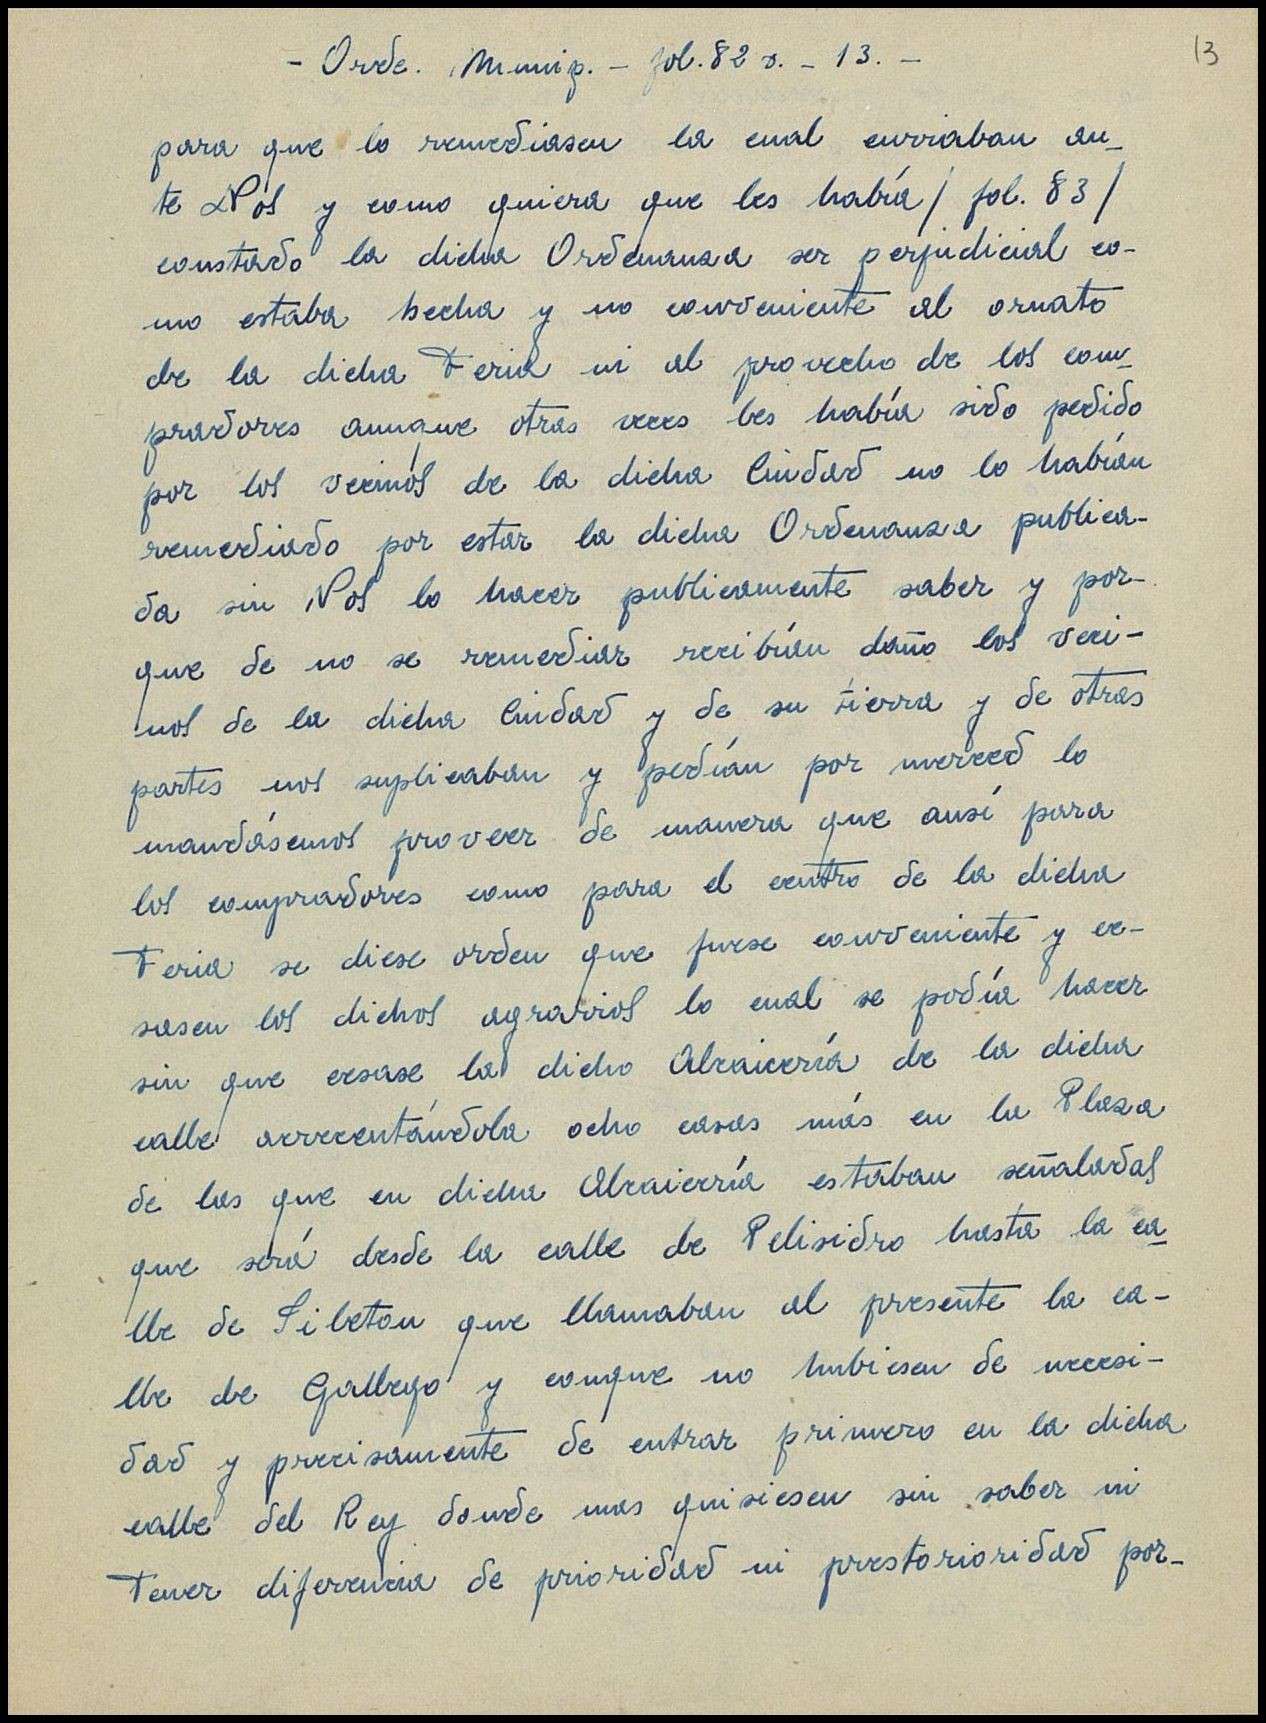 - Orde. Munip. - fol. 82 v. - 13. -
13
para que lo remediasen la cual enviaban an-
te Nos y como quiera que les había / fol. 83 /
constado la dicha Ordenanza ser perjudicial co-
mo estaba hecha y no conveniente al ornato
de la dicha Feria ni al provecho de los com-
pradores aunque otras veces les había sido pedido
por los vecinos de la dicha Ciudad no lo habían
remediado por estar la dicha Ordenanza publica-
da sin Nos lo hacer publicamente saber y por-
que de no se remediar recibían daño los veci-
nos de la dicha Ciudad y de su tierra y de otras
partes nos suplicaban y pedían por merced lo
mandásemos proveer de manera que ansí para
los compradores como para el centro de la dicha
Feria se diese orden que fuese conveniente y ce-
sasen los dichos agravios lo cual se podía hacer
sin que cesase la dicho Alcaicería de la dicha
calle acrecentándola ocho casas más en la Plaza
de las que en dicha Alcaicería estaban señaladas
que será desde la calle de Pelisidro hasta la ca
lle de Sibeton que llamaban al presente la ca-
lle de Gallego y conque no hubiesen de necesi-
dad y precisamente de entrar primero en la dicha
calle del Rey donde mas quisiesen sin saber ni
tener diferencia de prioridad ni prestorioridad por-